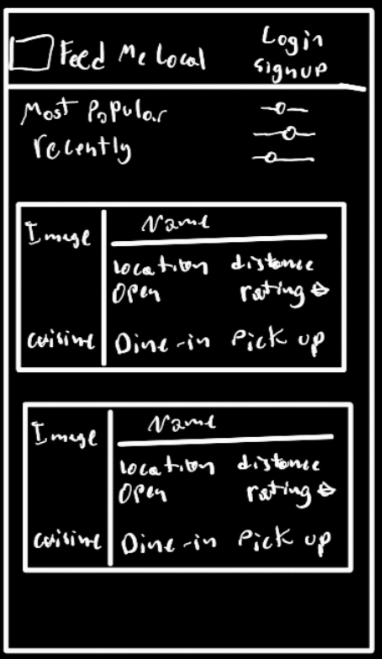 Feed Me Local
Login
signup
Most Popular
recently
Image
Name
location distance
Open rating
cuisine
Dine-in Pick up
Image
Name
location distance
Open rating
cuisine
Dine-in Pick up